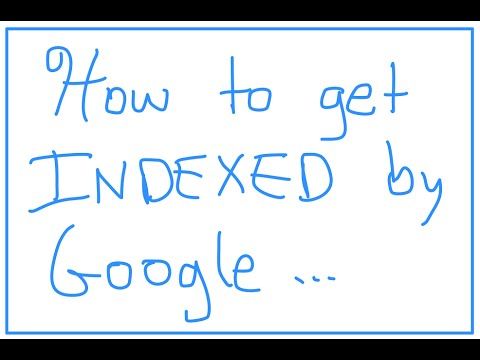 How to get
INDEXED by
Google ...